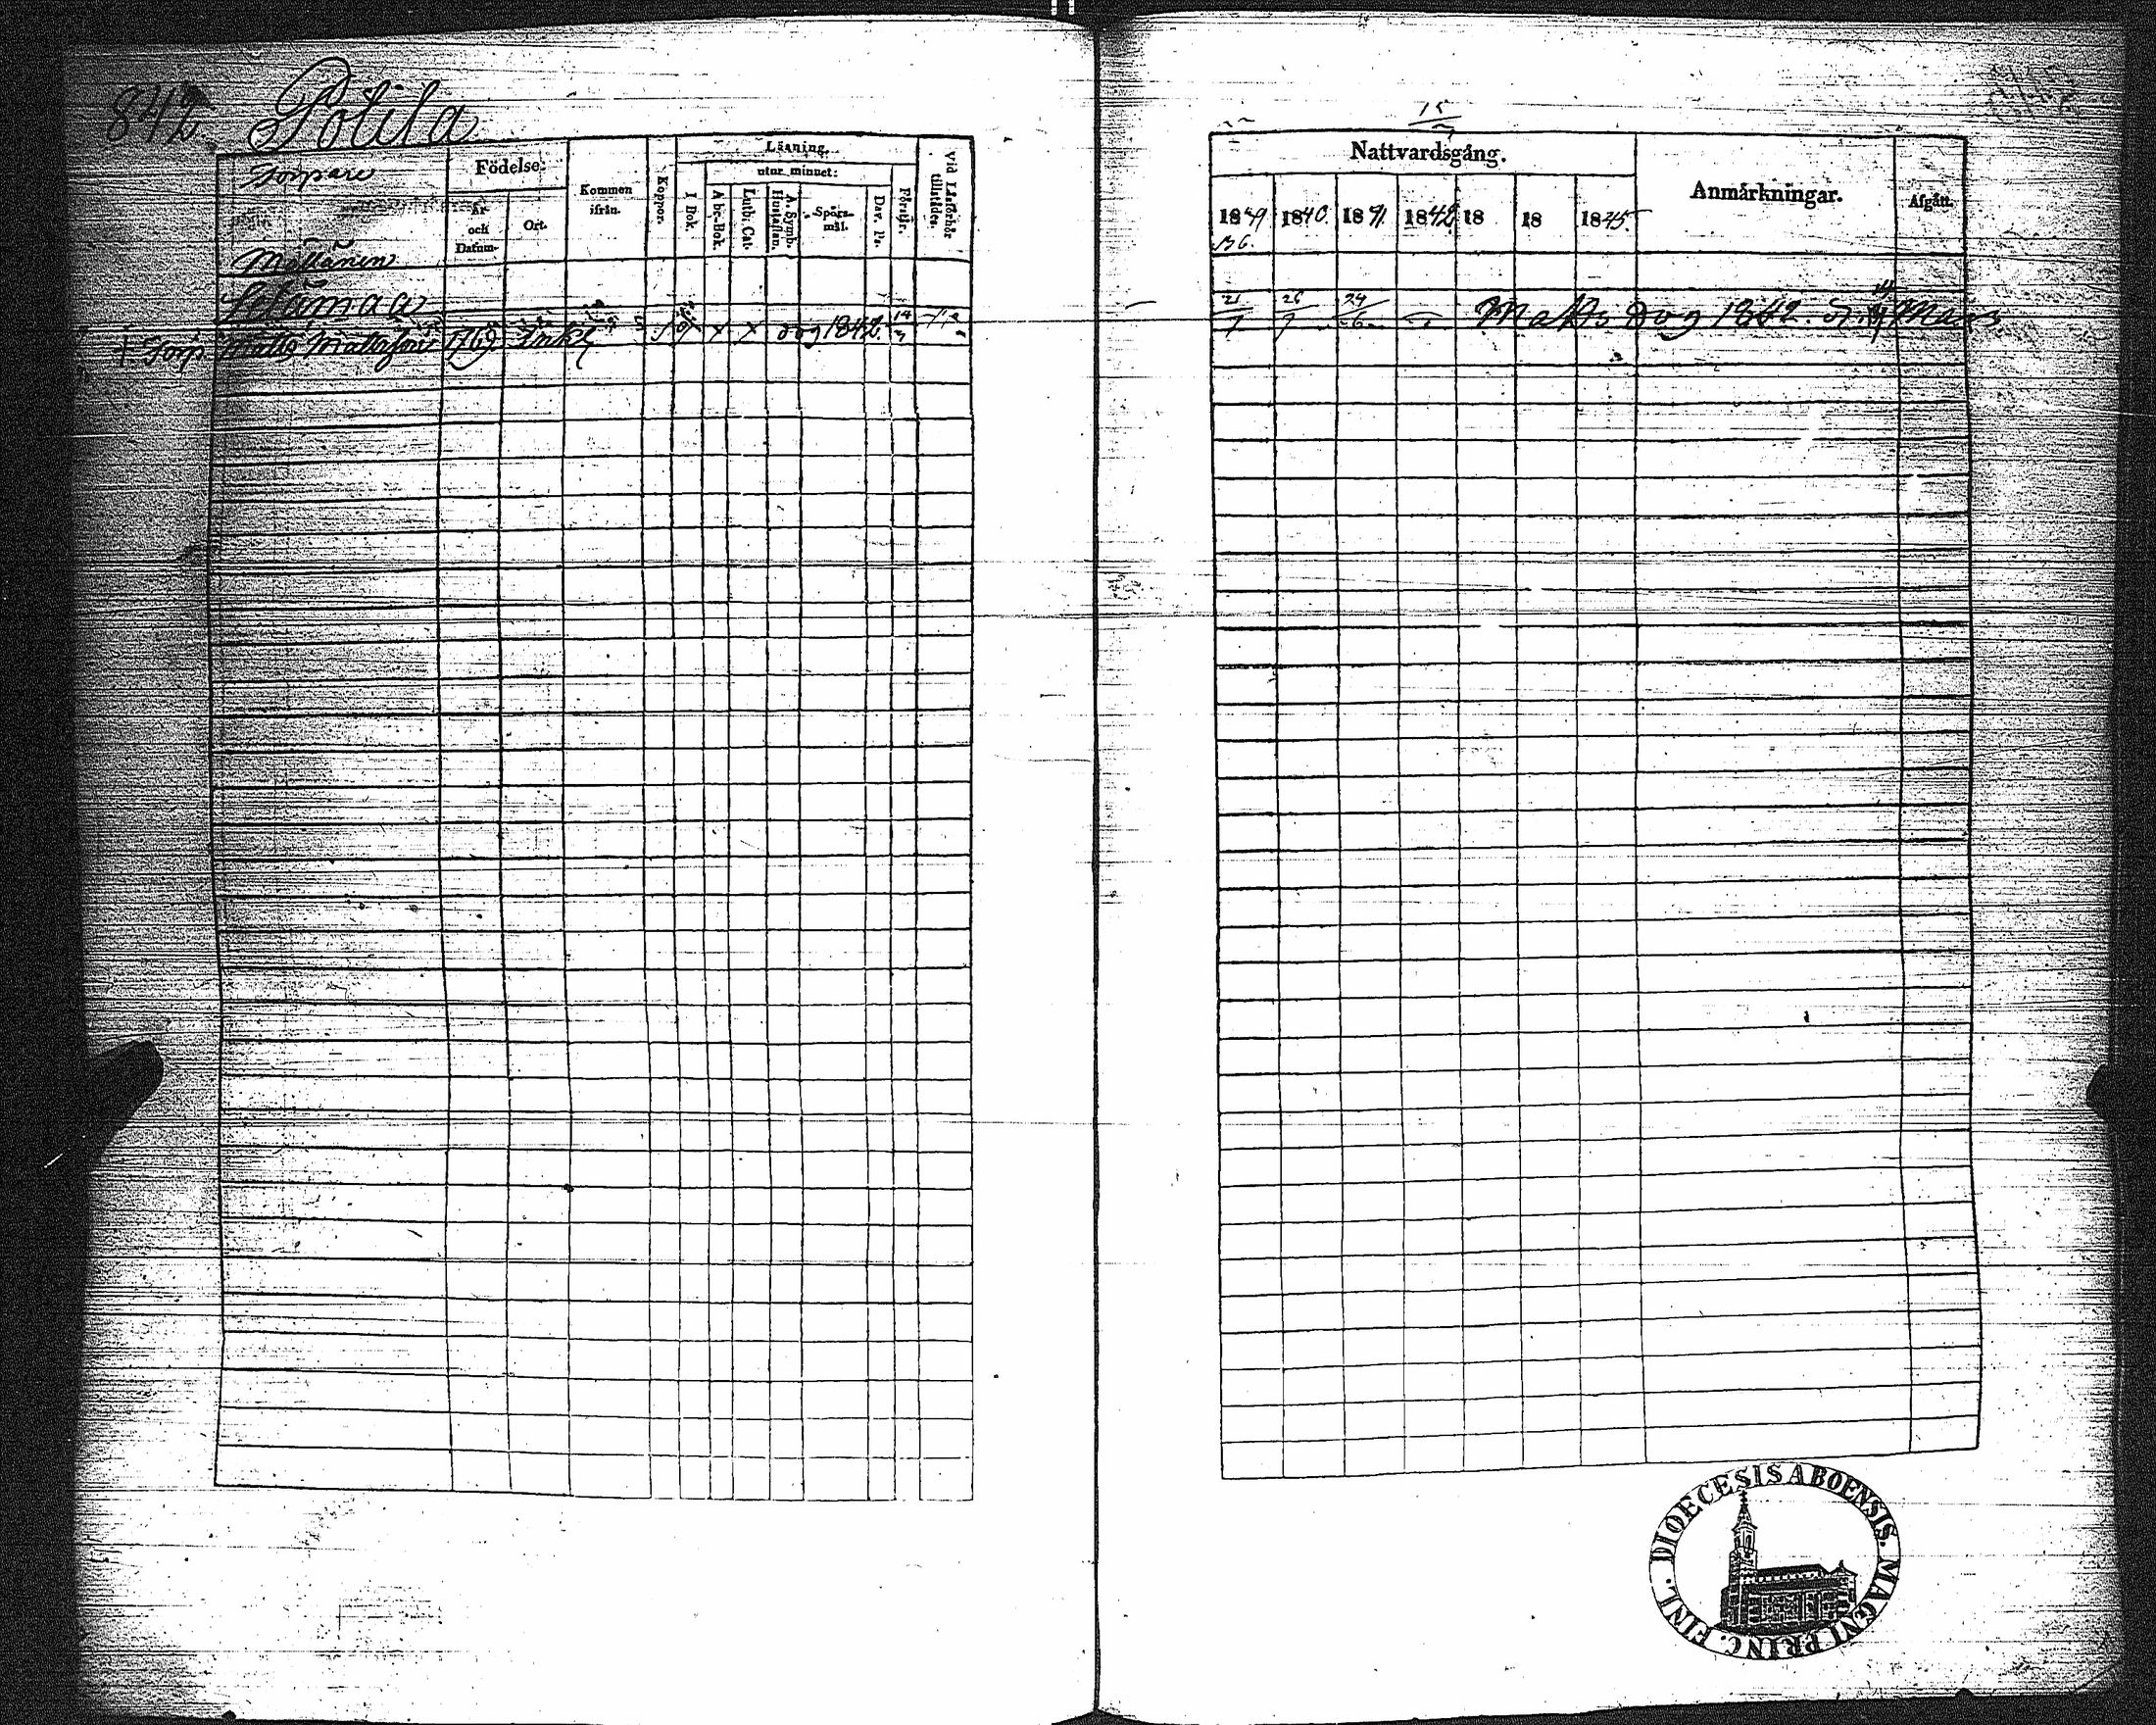 842. Potila
Torpare
Födelse:
År och Datum.
Ort.
Kommen ifrån.
Koppor.
Läsning.
utur minnet:
I Bok.
Abc-Bok.
Luth. Cat.
A. Symb. Hustaflan.
Spörsmål.
Dav. Ps.
Förstår.
Vid Läsförhör tillstädes.
Mättänen
† Torp Matts Mattsson 1769 x x dog 1842.
15
Nattvardsgång.
Anmärkningar.
Afgått.
1839 1840. 1841. 1842 18 18 1845.
21/7 26/7 24/6 Matts Dog 1842.
FINL. DIOECESIS ABOENSIS. MAGNI PRINC.